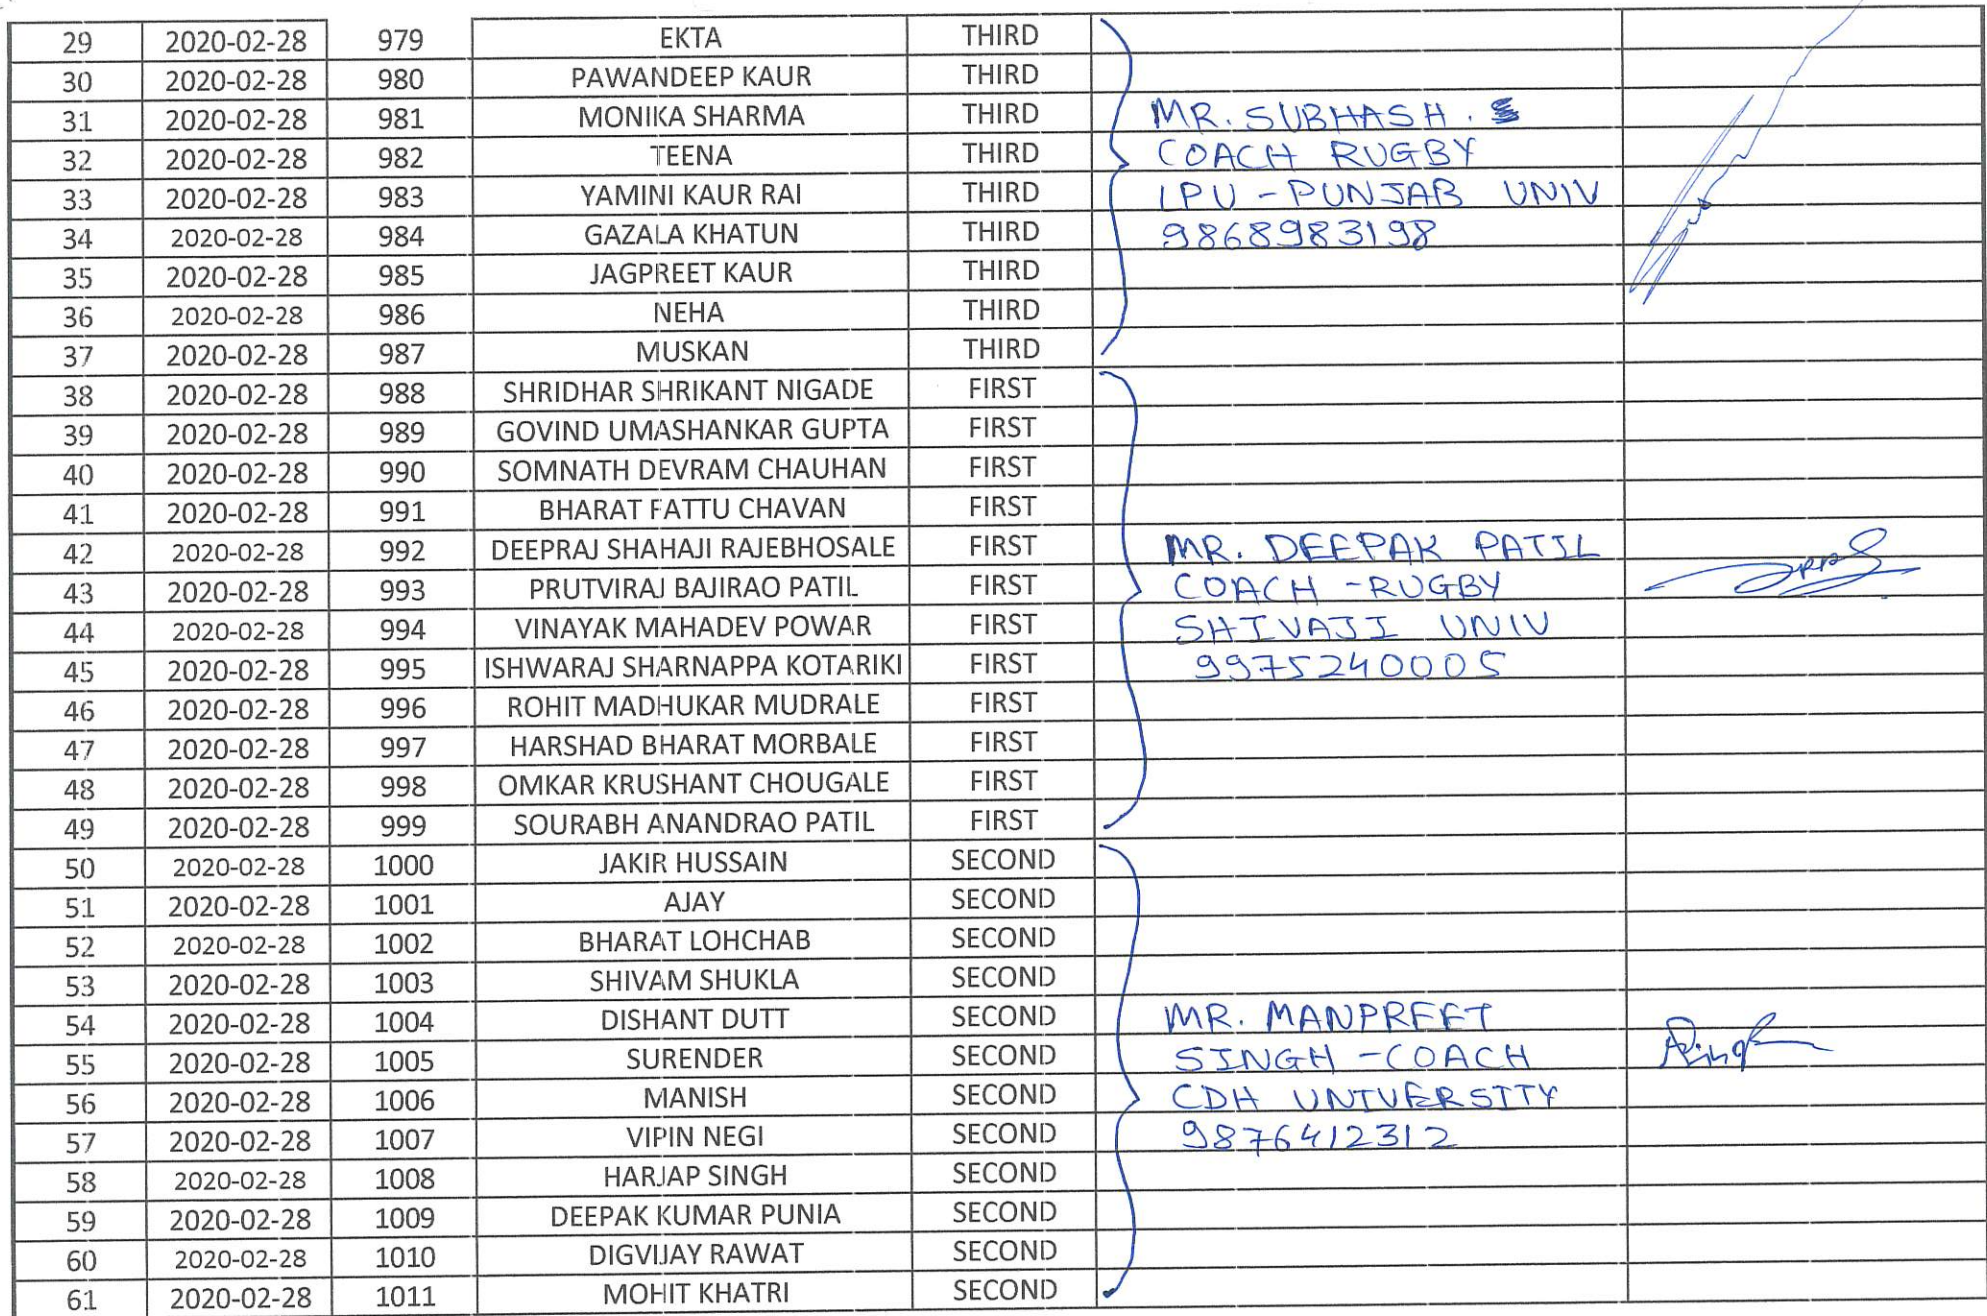 29 2020-02-28 979 EKTA THIRD
30 2020-02-28 980 PAWANDEEP KAUR THIRD
31 2020-02-28 981 MONIKA SHARMA THIRD MR. SUBHASH.
32 2020-02-28 982 TEENA THIRD COACH RUGBY
33 2020-02-28 983 YAMINI KAUR RAI THIRD IPU - PUNJAB UNIV
34 2020-02-28 984 GAZALA KHATUN THIRD 9868983198
35 2020-02-28 985 JAGPREET KAUR THIRD
36 2020-02-28 986 NEHA THIRD
37 2020-02-28 987 MUSKAN THIRD
38 2020-02-28 988 SHRIDHAR SHRIKANT NIGADE FIRST
39 2020-02-28 989 GOVIND UMASHANKAR GUPTA FIRST
40 2020-02-28 990 SOMNATH DEVRAM CHAUHAN FIRST
41 2020-02-28 991 BHARAT FATTU CHAVAN FIRST
42 2020-02-28 992 DEEPRAJ SHAHAJI RAJEBHOSALE FIRST MR. DEEPAK PATIL
43 2020-02-28 993 PRUTVIRAJ BAJIRAO PATIL FIRST COACH - RUGBY
44 2020-02-28 994 VINAYAK MAHADEV POWAR FIRST SHIVAJI UNIV
45 2020-02-28 995 ISHWARAJ SHARNAPPA KOTARIKI FIRST 9975240005
46 2020-02-28 996 ROHIT MADHUKAR MUDRALE FIRST
47 2020-02-28 997 HARSHAD BHARAT MORBALE FIRST
48 2020-02-28 998 OMKAR KRUSHANT CHOUGALE FIRST
49 2020-02-28 999 SOURABH ANANDRAO PATIL FIRST
50 2020-02-28 1000 JAKIR HUSSAIN SECOND
51 2020-02-28 1001 AJAY SECOND
52 2020-02-28 1002 BHARAT LOHCHAB SECOND
53 2020-02-28 1003 SHIVAM SHUKLA SECOND
54 2020-02-28 1004 DISHANT DUTT SECOND MR. MANPREET
55 2020-02-28 1005 SURENDER SECOND SINGH - COACH
56 2020-02-28 1006 MANISH SECOND CDH UNIVERSITY
57 2020-02-28 1007 VIPIN NEGI SECOND 9876412312
58 2020-02-28 1008 HARJAP SINGH SECOND
59 2020-02-28 1009 DEEPAK KUMAR PUNIA SECOND
60 2020-02-28 1010 DIGVIJAY RAWAT SECOND
61 2020-02-28 1011 MOHIT KHATRI SECOND